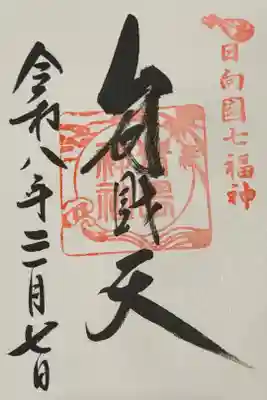 日向国七福神
弁財天
令和八年三月七日